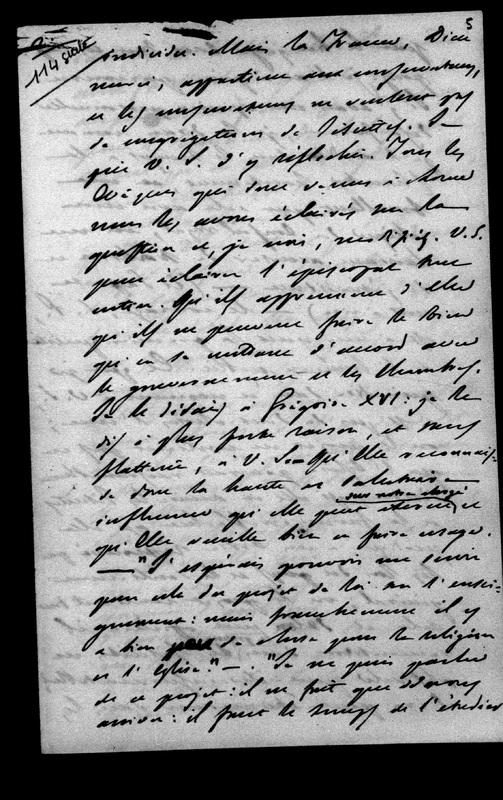 5
114
individu. Mais la France, Dieu
merci, appartient aux conservateurs,
et les conservateurs ne veulent pas
de congrégations de Jésuites. Je
prie V. S. d'y réfléchir. Tous les
Evêques qui sont venus à Rome
nous les avons éclairés sur la
question et, je crois, V. S.
peut éclairer l'épiscopat tout
entier. Qu'ils apprennent d'elle
qu'ils ne peuvent faire le bien
qu'en se mettant d'accord avec
le gouvernement et les Chambres.
Je le disais à Grégoire XVI: je le
dis à plus forte raison, et sans
flatterie, à V. S. Qu'Elle reconnais-
se donc la haute et salutaire
sur notre clergé
influence qu'elle peut exercer et
qu'Elle veuille bien en faire usage.
— "J'espérais pouvoir me servir
pour cela du projet de loi sur l'ensei-
gnement: mais franchement il y
a bien peu de chose pour la religion
et l'Eglise." — "Je ne puis parler
de ce projet: il ne fait que
arriver: il faut le temps de l'étudier